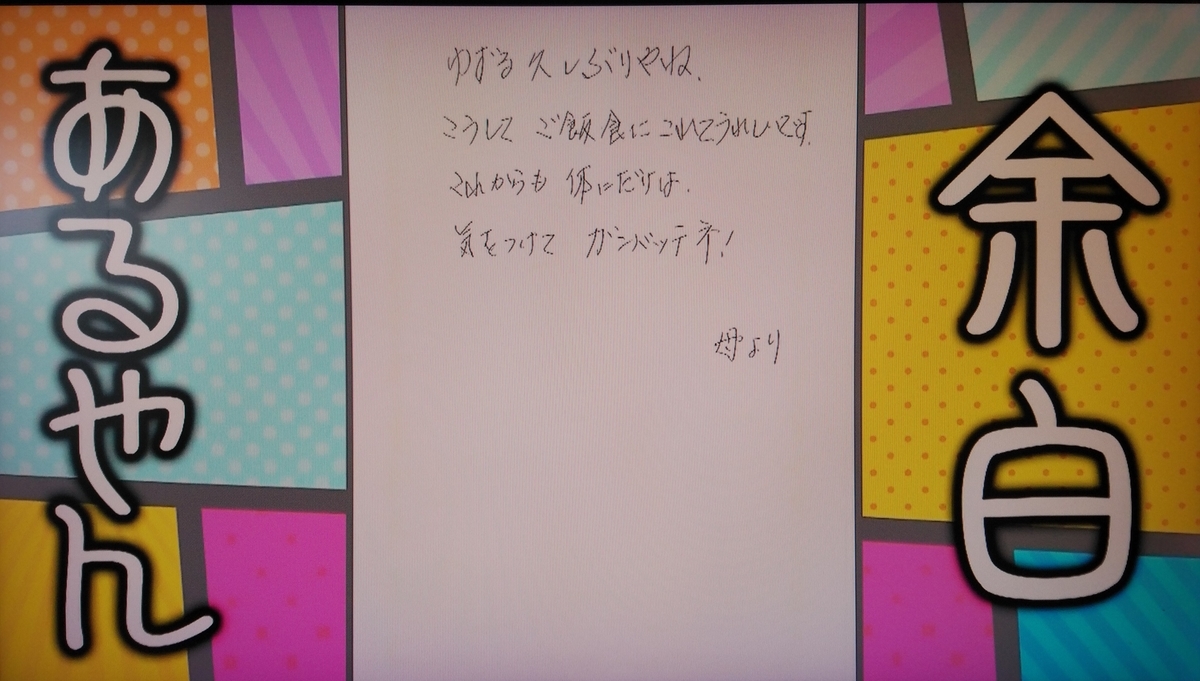 余白
あるやん
ゆずる 久しぶりやね、
こうして ご飯食にこれてうれしいです。
これからも 体にだけは、
気をつけて ガンバッテネ!
母より